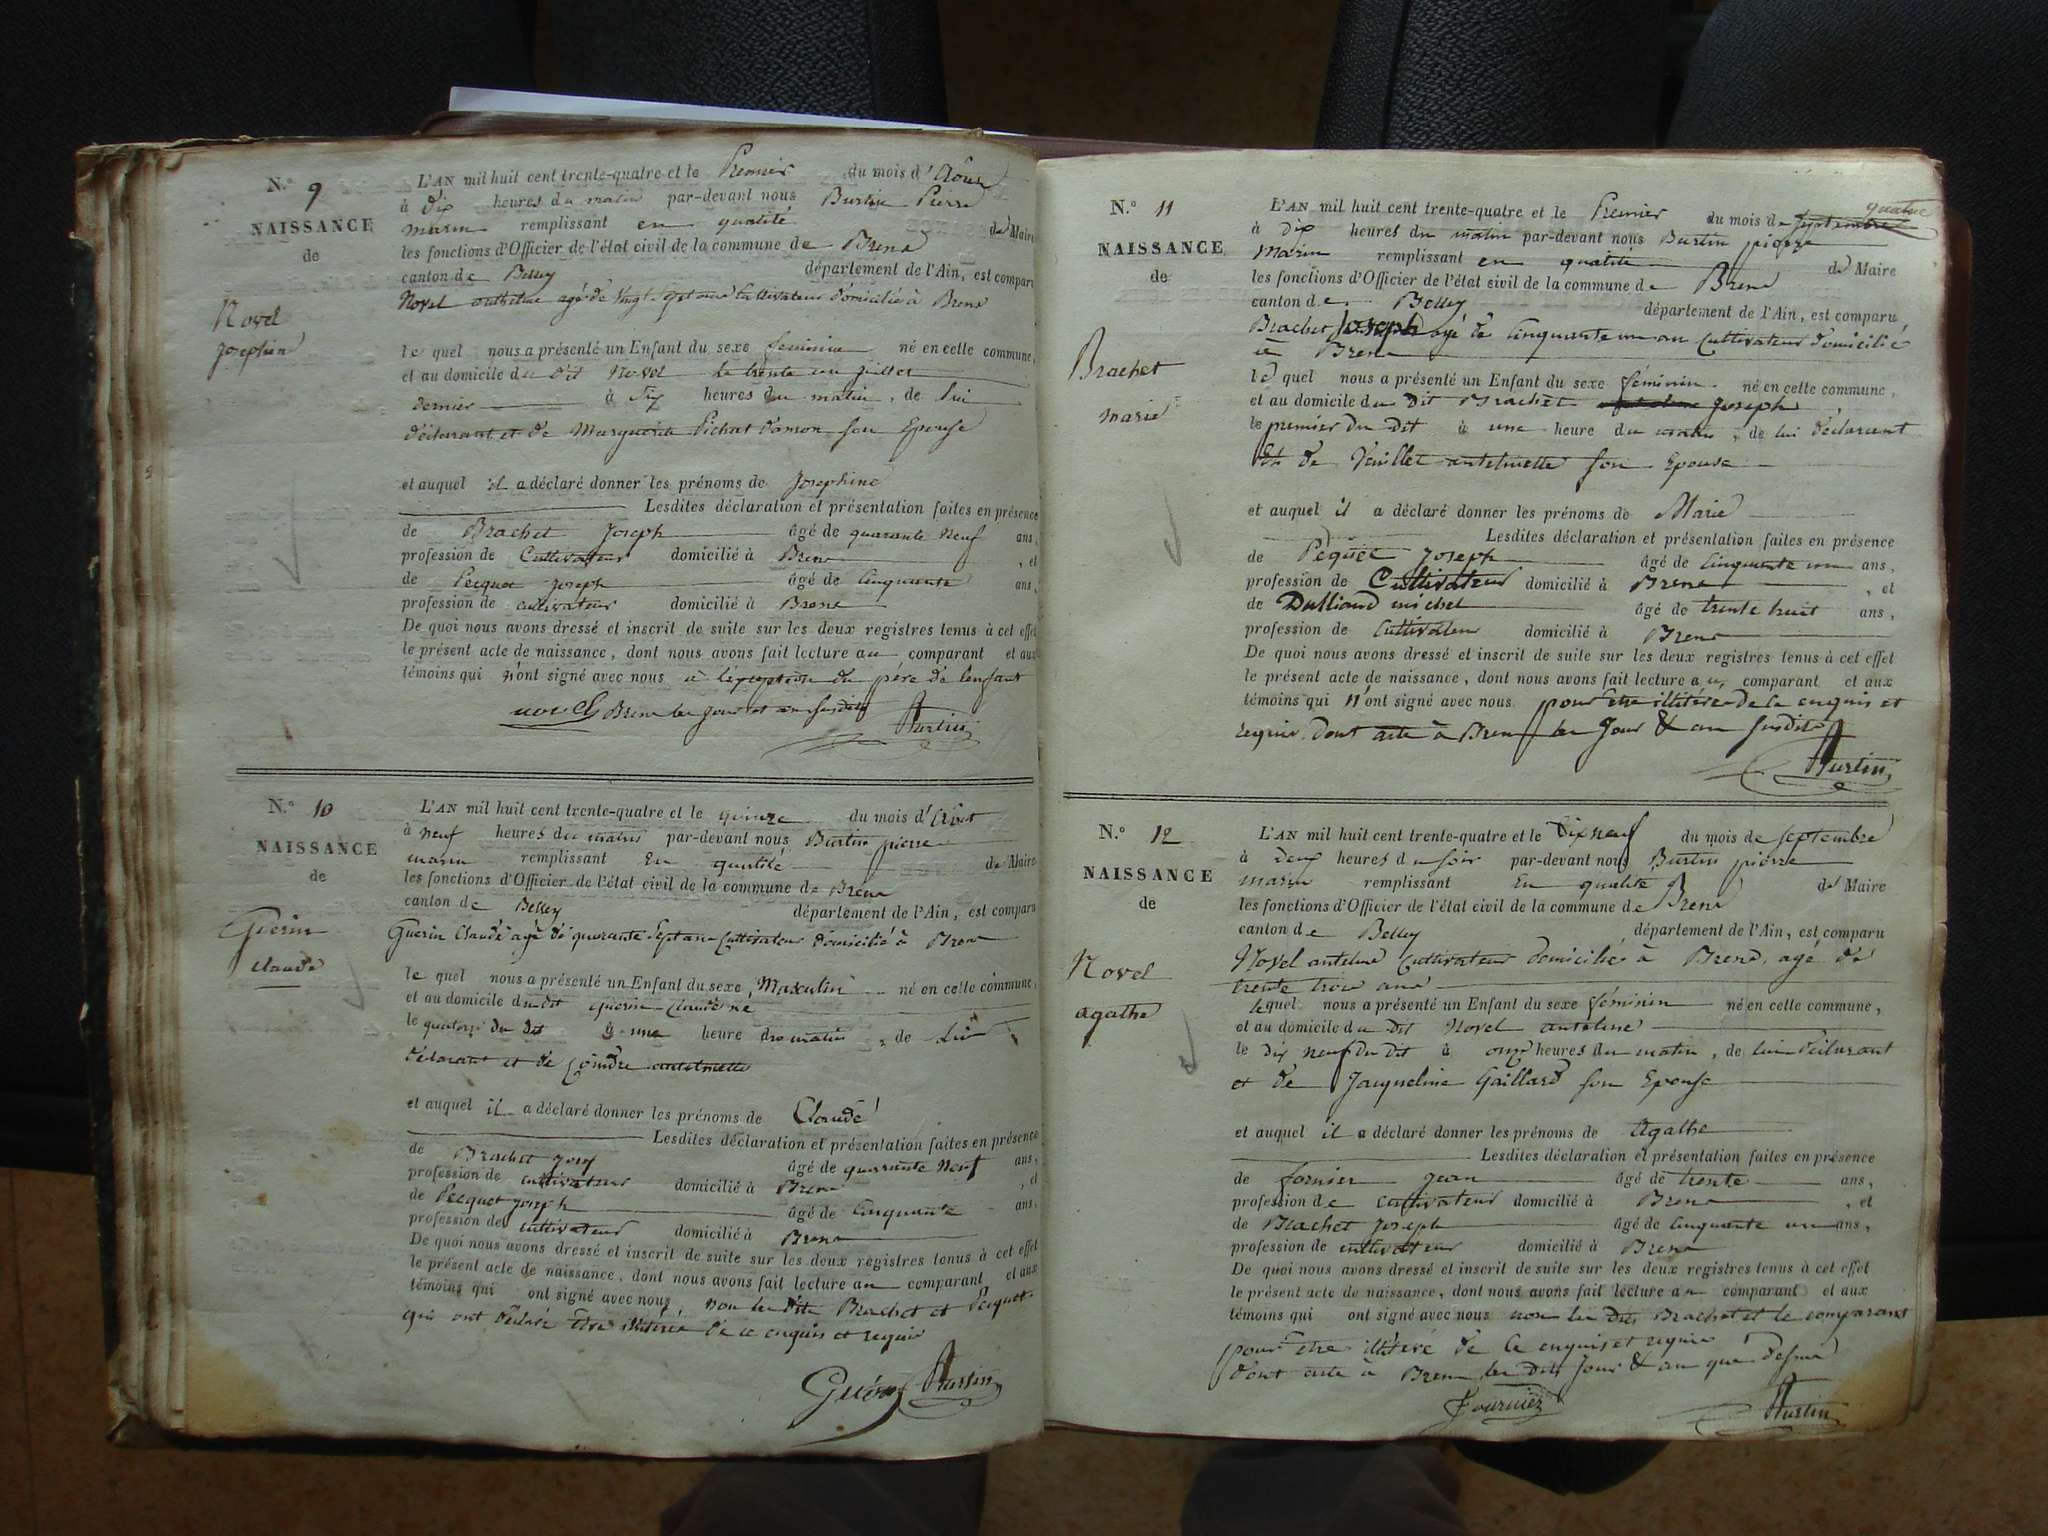 N.° 9
NAISSANCE
de
Novel
Josephine
L'AN mil huit cent trente-quatre et le Premier du mois d'Aôust
à dix heures du matin par-devant nous Burtin Pierre
marin remplissant en qualité de Maire
les fonctions d'Officier de l'état civil de la commune de Brens
canton de Belley département de l'Ain, est comparu
Novel anthelme agé de vingt sept ans Cultivateur domicilié à Brens
le quel nous a présenté un Enfant du sexe feminin né en cette commune,
et au domicile du dit Novel le trente un juillet
dernier à six heures du matin, de lui
déclarant et de Marguerite Pichat son Epouse
et auquel il a déclaré donner les prénoms de Josephine
Lesdites déclaration et présentation faites en présence
de Brachet Joseph âgé de quarante neuf ans,
profession de Cultivateur domicilié à Brens, et
de Pecquet joseph âgé de Cinquante ans,
profession de cultivateur domicilié à Brens
De quoi nous avons dressé et inscrit de suite sur les deux registres tenus à cet effet
le présent acte de naissance, dont nous avons fait lecture au comparant et aux
témoins qui n'ont signé avec nous à l'exception du père de l'enfant
novel Brens les jour et an susdits
Burtin
N.° 10
NAISSANCE
de
Guerin
claude
L'AN mil huit cent trente-quatre et le quinze du mois d'Aôut
à neuf heures du matin par-devant nous Burtin pierre
marin remplissant En qualité de Maire
les fonctions d'Officier de l'état civil de la commune de Brens
canton de Belley département de l'Ain, est comparu
Guerin Claude agé de quarante sept ans Cultivateur domicilié à Brens
le quel nous a présenté un Enfant du sexe Masculin né en cette commune,
et au domicile du dit Guerin Claude né
le quatorze du dit à une heure du matin, de lui
déclarant et de Coindre antelmette
et auquel il a déclaré donner les prénoms de Claude
Lesdites déclaration et présentation faites en présence
de Brachet Josef âgé de quarante neuf ans,
profession de cultivateur domicilié à Brens, et
de Pecquet joseph âgé de Cinquante ans,
profession de cultivateur domicilié à Brens
De quoi nous avons dressé et inscrit de suite sur les deux registres tenus à cet effet
le présent acte de naissance, dont nous avons fait lecture au comparant et aux
témoins qui ont signé avec nous non les dits Brachet et Pecquet
qui ont déclaré être illitéré de ce enquis et requis
Guérin Burtin
N.° 11
NAISSANCE
de
Brachet
marie
L'AN mil huit cent trente-quatre et le Premier du mois de septembre quatre
à dix heures du matin par-devant nous Burtin pierre
Marin remplissant en qualité de Maire
les fonctions d'Officier de l'état civil de la commune de Brens
canton de Belley département de l'Ain, est comparu
Brachet Joseph agé de Cinquante un an Cultivateur domicilié
à Brens
le quel nous a présenté un Enfant du sexe féminin né en cette commune,
et au domicile du Dit Brachet Joseph
le premier du dit à une heure du matin, de lui déclarant
Et de Veuillet antelmette son Epouse
et auquel il a déclaré donner les prénoms de Marie
Lesdites déclaration et présentation faites en présence
de Pequet Joseph âgé de Cinquante un ans,
profession de Cultivateur domicilié à Brens, et
de Dulliand michel âgé de trente huit ans,
profession de Cultivateur domicilié à Brens
De quoi nous avons dressé et inscrit de suite sur les deux registres tenus à cet effet
le présent acte de naissance, dont nous avons fait lecture au comparant et aux
témoins qui n'ont signé avec nous pour être illitéré de ce enquis et
requis dont acte à Brens les Jour & an susdits
Burtin
N.° 12
NAISSANCE
de
Novel
agathe
L'AN mil huit cent trente-quatre et le Dix neuf du mois de septembre
à deux heures du soir par-devant nous Burtin pierre
marin remplissant En qualité de Maire
les fonctions d'Officier de l'état civil de la commune de Brens
canton de Belley département de l'Ain, est comparu
Novel antelme Cultivateur domicilié à Brens, agé de
trente trois ans
lequel nous a présenté un Enfant du sexe féminin né en cette commune,
et au domicile du dit Novel antelme
le dix neuf du dit à onze heures du matin, de lui déclarant
et de Jacqueline Gaillard son Epouse
et auquel il a déclaré donner les prénoms de Agathe
Lesdites déclaration et présentation faites en présence
de fornier jean âgé de trente ans,
profession de cultivateur domicilié à Brens, et
de Brachet Joseph âgé de cinquante un ans,
profession de cultivateur domicilié à Brens
De quoi nous avons dressé et inscrit de suite sur les deux registres tenus à cet effet
le présent acte de naissance, dont nous avons fait lecture au comparant et aux
témoins qui ont signé avec nous non les dits Brachet et le comparant
pour être illitéré de ce enquis et requis
dont acte à Brens les dits Jour & an que dessus
Fournier Burtin